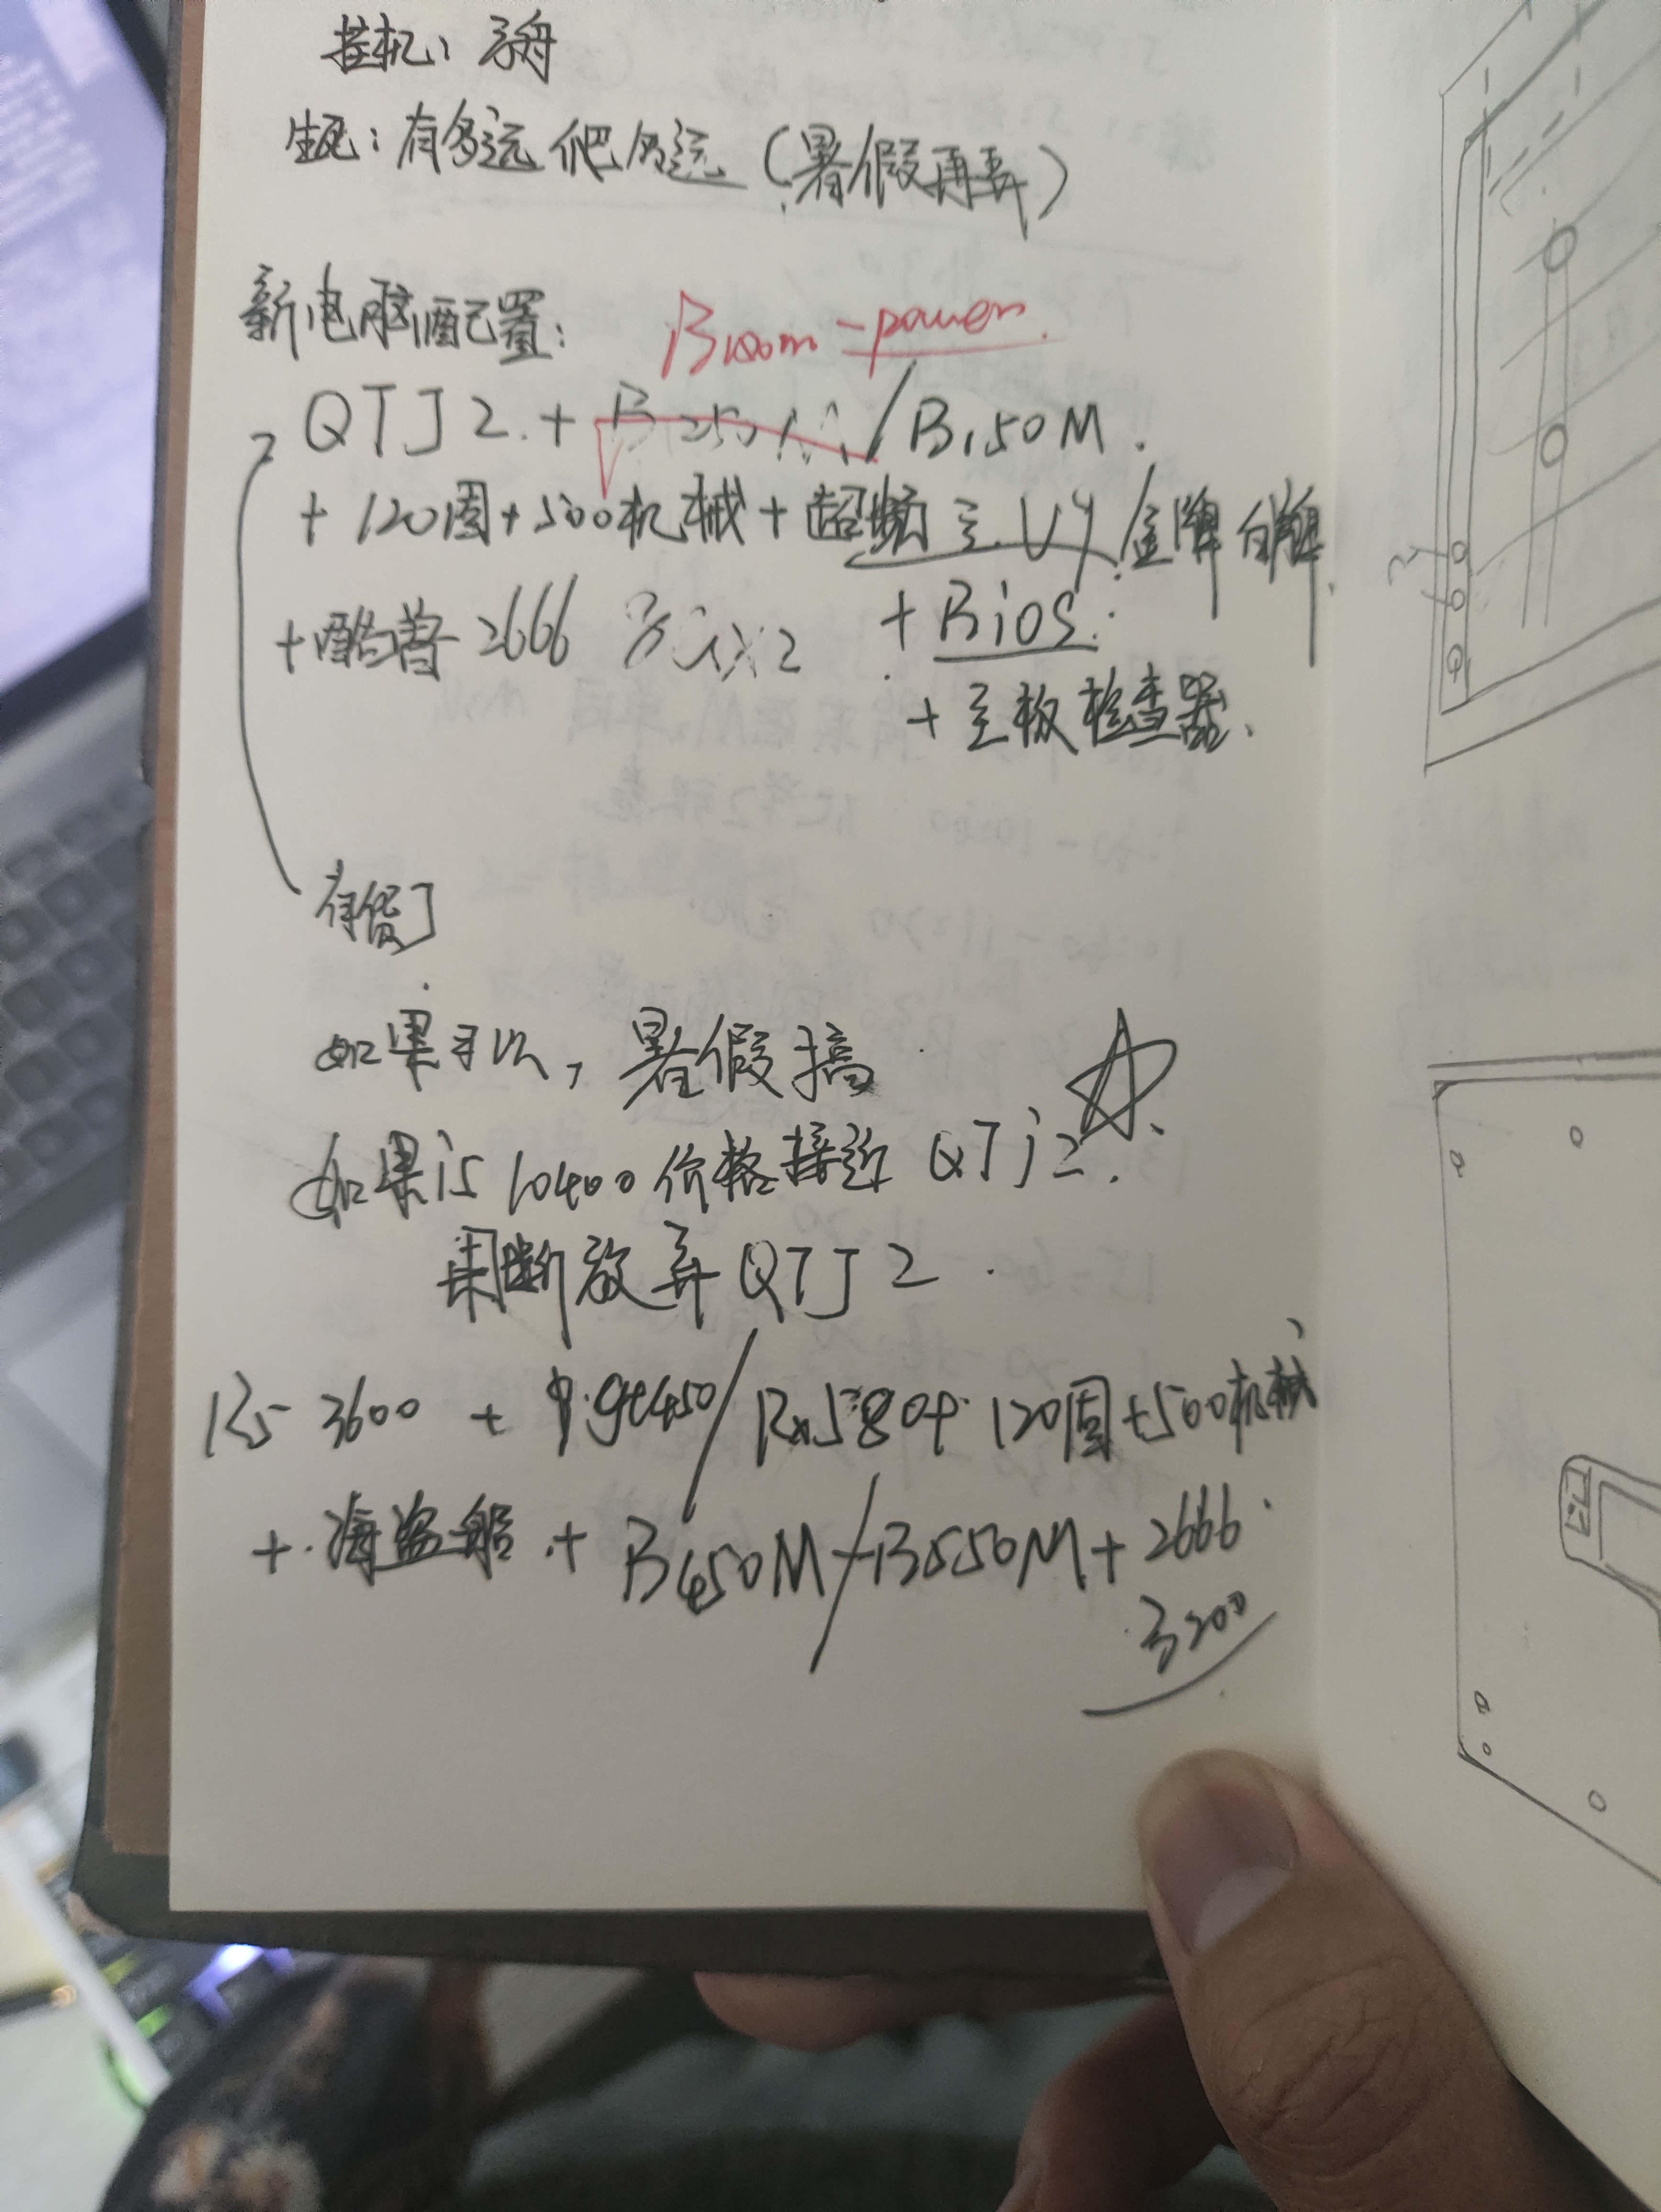 挂机:方舟
生死:有多远爬多远(暑假再弄)
新电脑配置:
power
QTJ2.+B250M/B150M.
+120固+500机械+超频三 /金牌 白牌
+酷兽2666 8G×2 +Bios.
+主板检查器、
有货了
如果可以,暑假搞
如果i5 10400价格接近QTJ2.
果断放弃QTJ2.
R5 3600+ /Rx580+120固+500机械
+海盗船+B450M/B550M+2666
3200